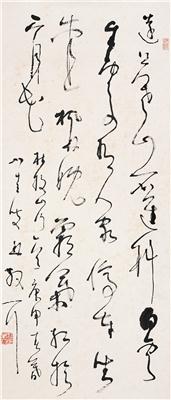 遠上寒山石逕斜白雲
生處有人家停車坐
愛楓林晚霜葉紅於
二月花
杜牧山行庚申
散耳